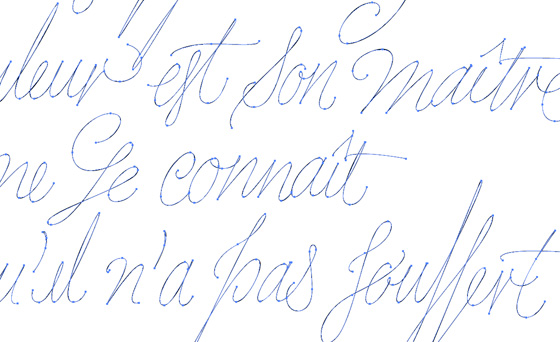 uleur est son maître
ne se connaît
u'il n'a pas souffert